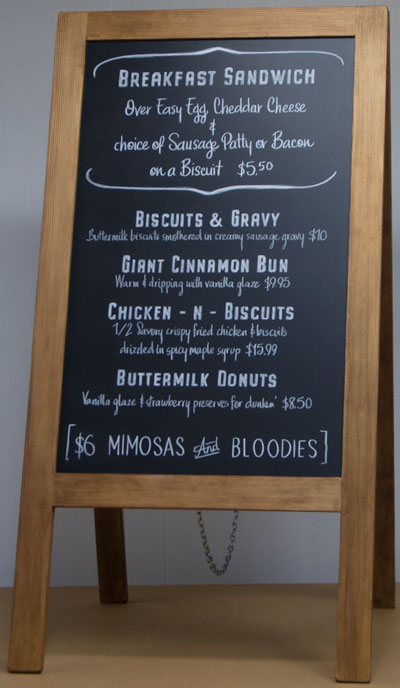 BREAKFAST SANDWICH
Over Easy Egg, Cheddar Cheese
&
choice of Sausage Patty or Bacon
on a Biscuit $5.50
BISCUITS & GRAVY
Buttermilk biscuits smothered in creamy sausage gravy $10
GIANT CINNAMON BUN
Warm & dripping with vanilla glaze $9.95
CHICKEN - N - BISCUITS
1/2 Savory crispy fried chicken & biscuits
drizzled in spicy maple syrup $15.99
BUTTERMILK DONUTS
Vanilla glaze & strawberry preserves for dunkin' $8.50
[$6 MIMOSAS And BLOODIES]